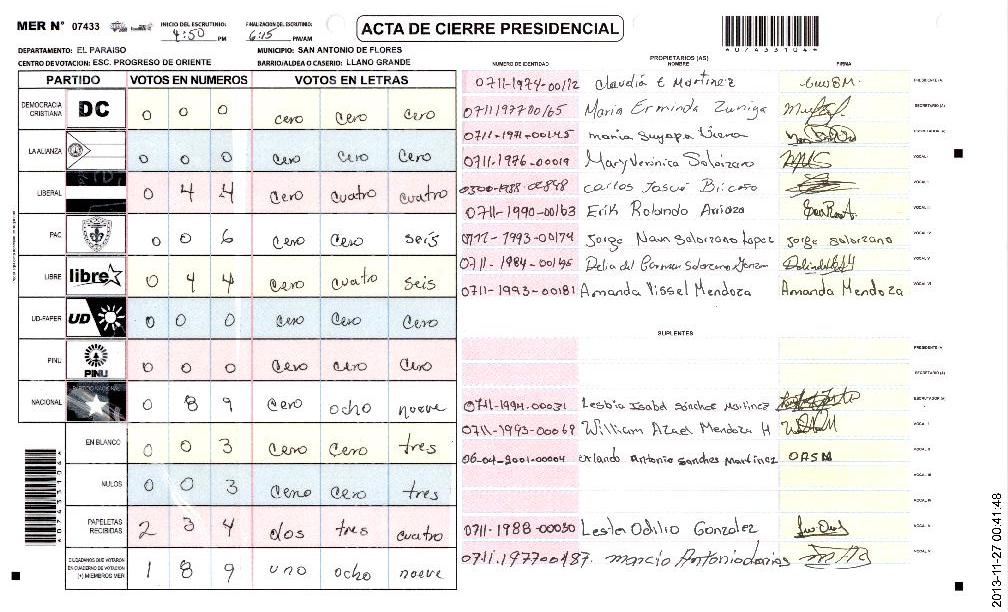 MER N° 07433
INICIO DEL ESCRUTINIO: 4:50 PM
FINALIZACION DEL ESCRUTINIO: 6:15 PM/AM
ACTA DE CIERRE PRESIDENCIAL
*07433104*
DEPARTAMENTO: EL PARAISO
MUNICIPIO: SAN ANTONIO DE FLORES
CENTRO DE VOTACION: ESC. PROGRESO DE ORIENTE
BARRIO/ALDEA O CASERIO: LLANO GRANDE
PARTIDO VOTOS EN NUMEROS VOTOS EN LETRAS
DEMOCRACIA CRISTIANA DC 0 0 0 cero cero cero
LA ALIANZA 0 0 0 cero cero cero
LIBERAL 0 4 4 cero cuatro cuatro
PAC 0 0 6 cero cero seis
LIBRE libre 0 4 4 cero cuatro seis
UD-FAPER UD 0 0 0 cero cero cero
PINU PINU 0 0 0 cero cero cero
NACIONAL 0 8 9 cero ocho nueve
EN BLANCO 0 0 3 cero cero tres
NULOS 0 0 3 cero cero tres
PAPELETAS RECIBIDAS 2 3 4 dos tres cuatro
CIUDADANOS QUE VOTARON EN CUADERNO DE VOTACION (+) MIEMBROS MER 1 8 9 uno ocho nueve
*07433104*
PROPIETARIOS (AS)
NUMERO DE IDENTIDAD NOMBRE FIRMA
0711-1974-00112 Claudia E Martinez PRESIDENTE (A)
0711197700165 Maria Erminda Zuniga SECRETARIO (A)
0711-1971-00145 maria Suyapa
0711-1976-00019 Mary Veronica Solorzano VOCAL I
Carlos Josué Briceño VOCAL II
0711-1990-00163 Erik Rolando VOCAL III
1993-00174 Jorge Naun Solorzano Lopez Jorge solorzano VOCAL IV
0711-1984-00195 Delia del Carmen Solorzano VOCAL V
0711-1993-00181 Amanda Yissel Mendoza Amanda Mendoza VOCAL VI
SUPLENTES
PRESIDENTE (A)
SECRETARIO (A)
0711-1994-00031 Lesbia Isabel Sánchez Martinez ESCRUTADOR (A)
0711-1993-00069 William Azael Mendoza H VOCAL I
06-04-2001-00004 orlando Antonio Sanches Martínez OASM VOCAL II
VOCAL III
VOCAL IV
0711-1988-00030 Lester Odilio Gonzalez VOCAL V
0711.197700187. marcio Antonio VOCAL VI
2013-11-27 00:41:48